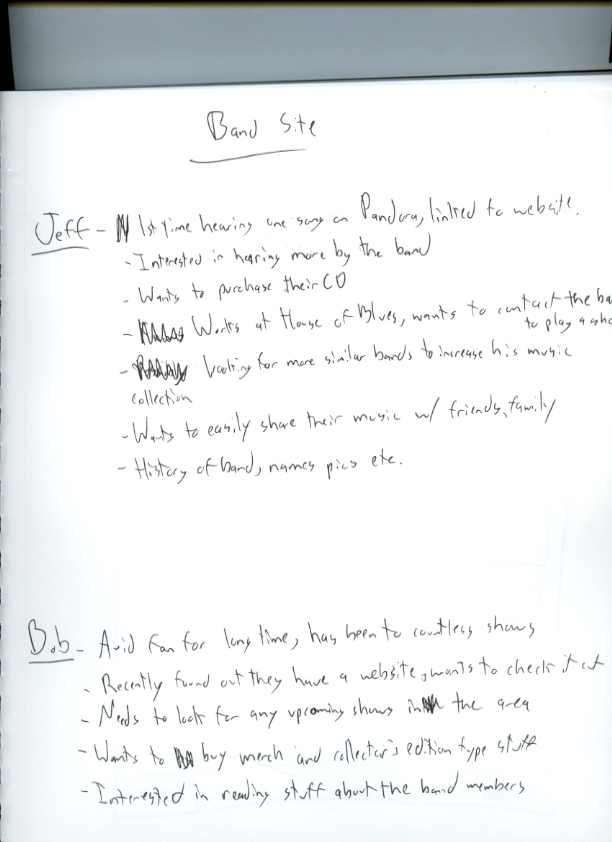 Band Site
Jeff - 1st time hearing one song on Pandora, linked to website.
- Interested in hearing more by the band
- Wants to purchase their CD
- Works at House of Blues, wants to contact the ba
to play a sho
- looking for more similar bands to increase his music
collection
- Wants to easily share their music w/ friends, family
- History of band, names pics etc.
Bob - Avid fan for long time, has been to countless shows
- Recently found out they have a website, wants to check it out
- Needs to look for any upcoming shows in the area
- Wants to buy merch and collector's edition type stuff
- Interested in reading stuff about the band members